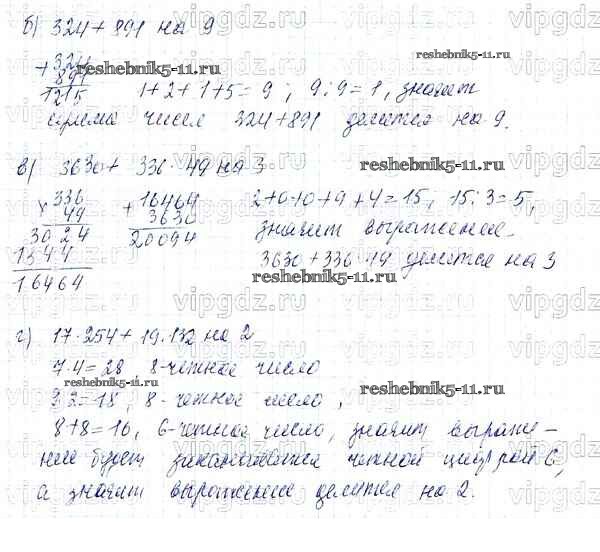 б) 324 + 891 на 9
+ 324
891
1215
1+2+1+5=9 ; 9:9=1, значит
сумма чисел 324+891 делится на 9.
в) 3630 + 336·49 на 3
× 336
49
3024
1344
16464
+ 16464
3630
20094
2+0+0+9+4=15; 15:3=5,
значит выражение
3630+336·49 делится на 3
г) 17·254+19·132 на 2
7·4=28 8-четное число
9·2=18, 8-четное число,
8+8=16, 6-четное число, значит выраже-
ние будет заканчиваться четной цифрой 6,
а значит выражение делится на 2.
reshebnik5-11.ru
reshebnik5-11.ru
reshebnik5-11.ru
reshebnik5-11.ru
reshebnik5-11.ru
reshebnik5-11.ru
vipgdz.ru